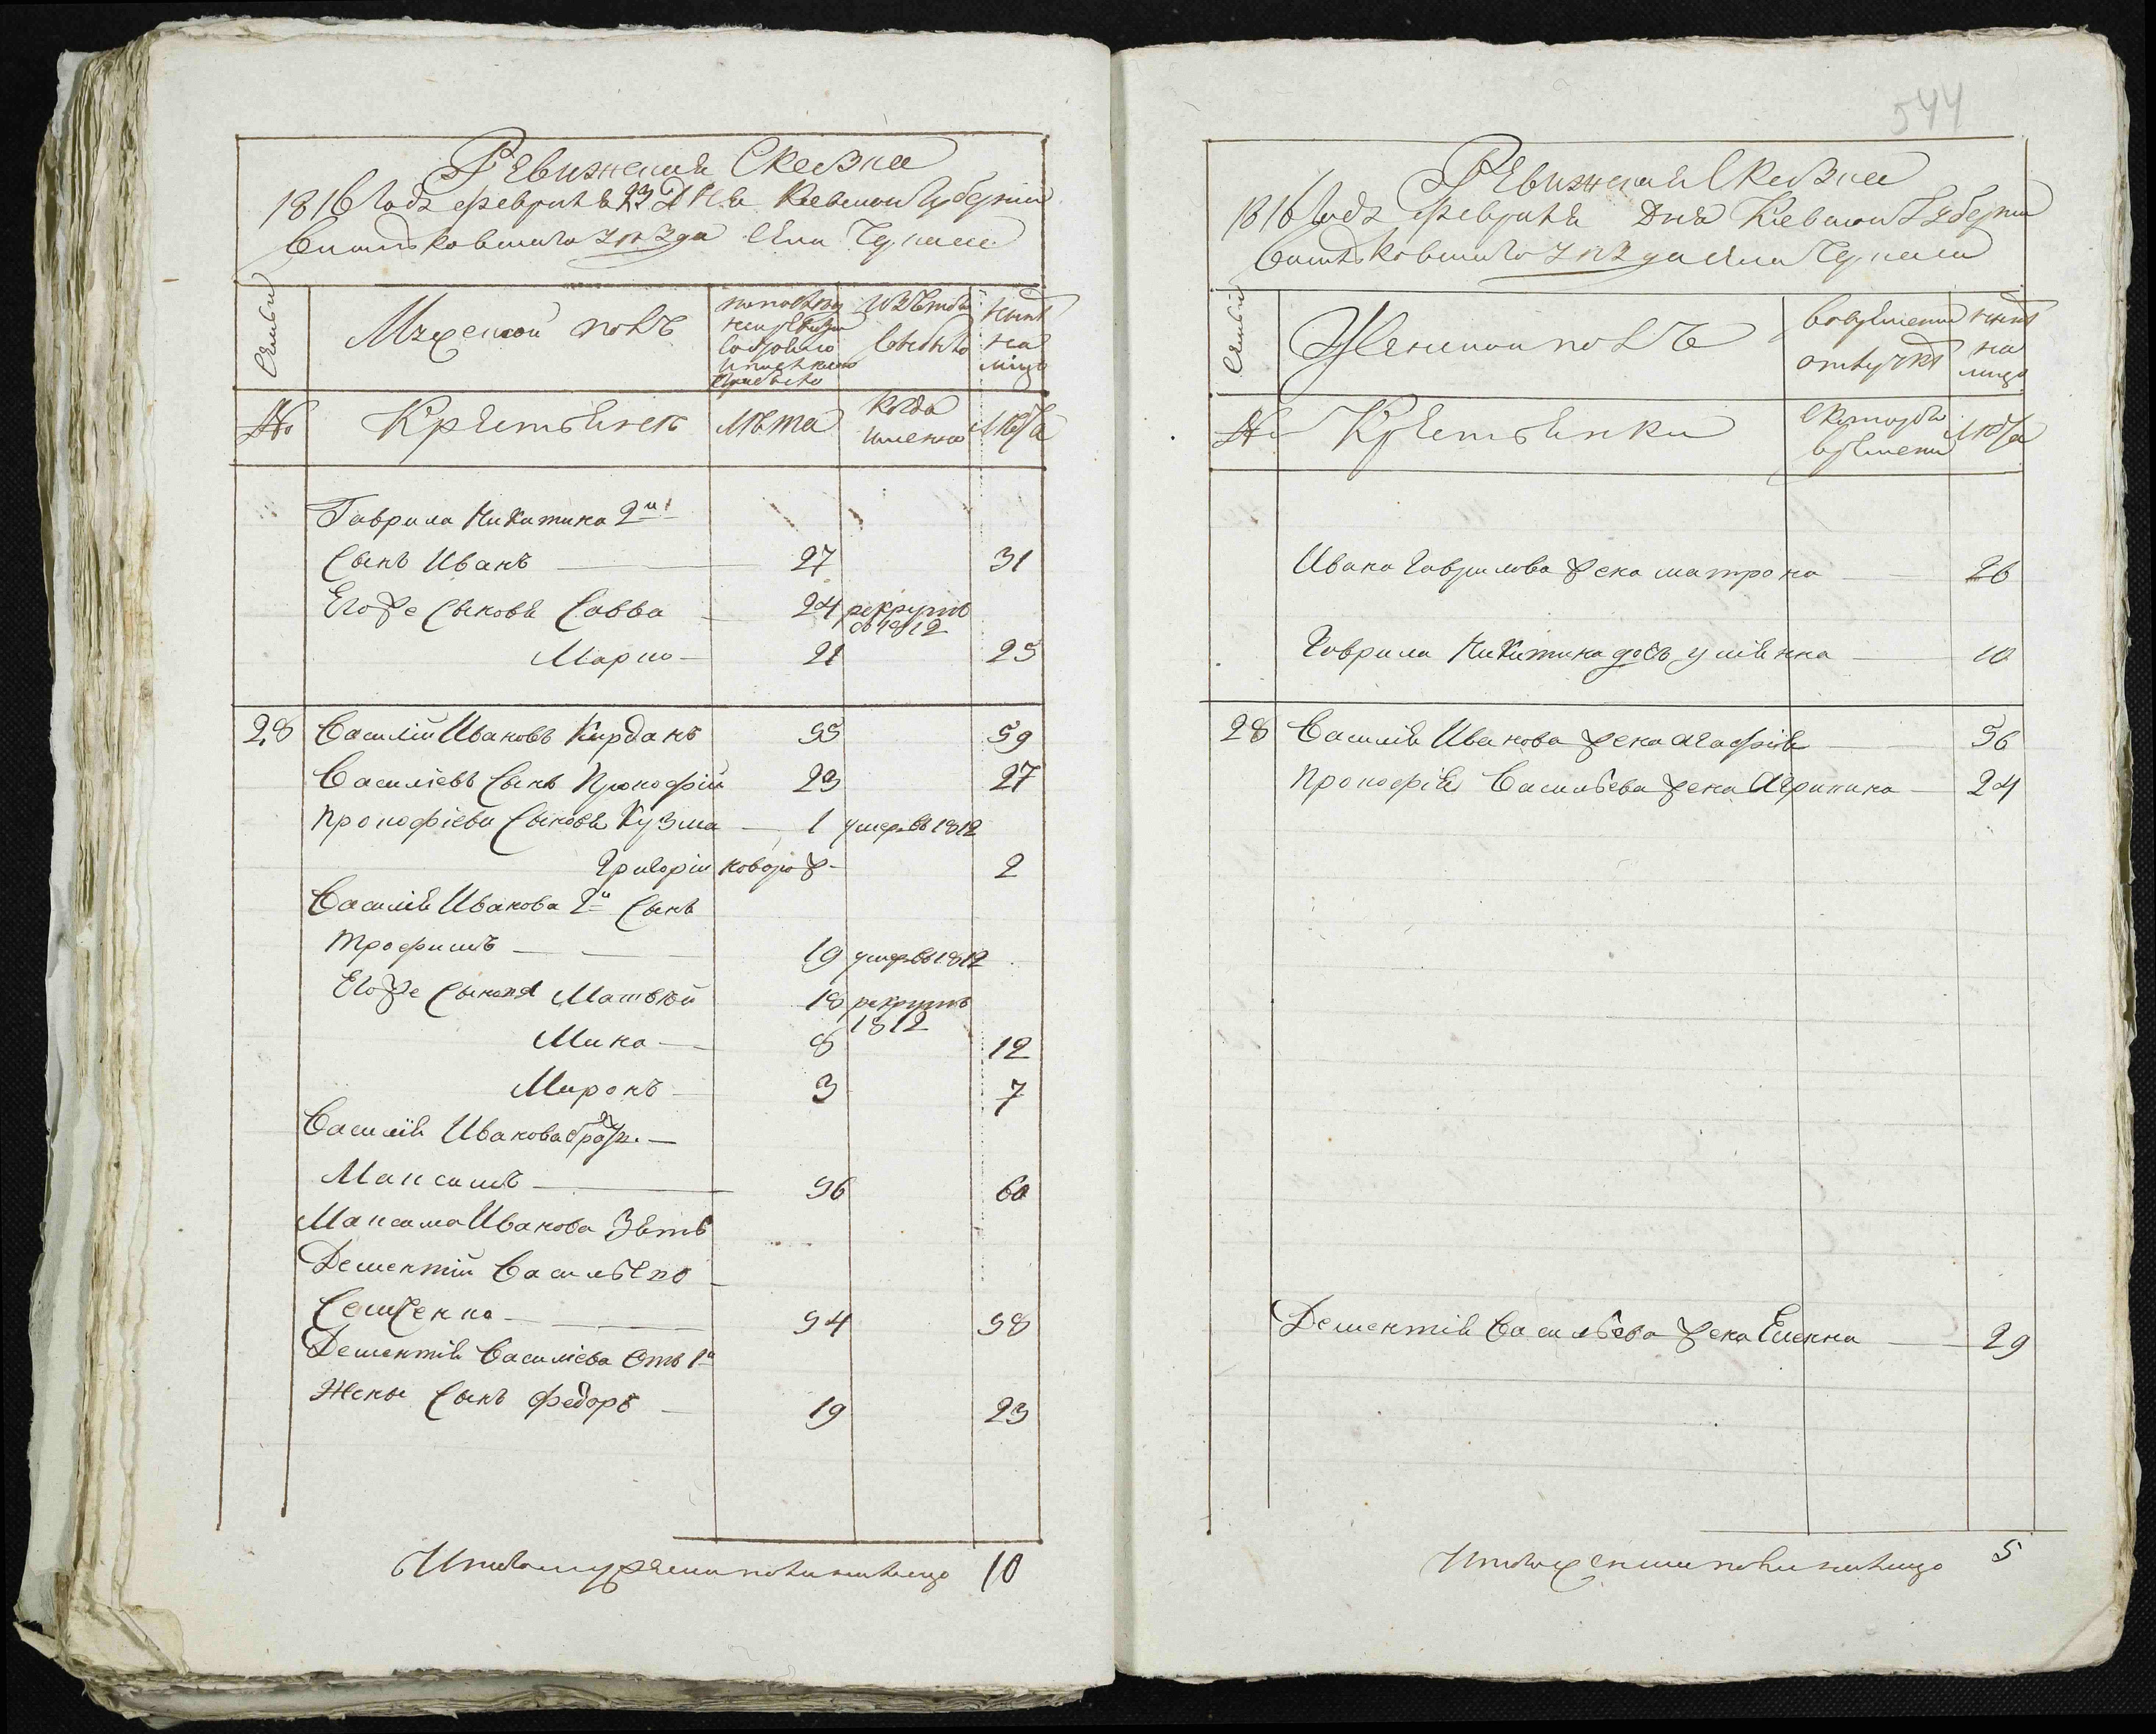 Ревижская Сказка
1816 года февраля 23 Дня Киевской Губернии
Васильковского уезда села Черкас
Семьи
Мужеской полъ
по последней ревизии состояло и после оной прибыло
Изъ того выбыло
ныне на лицо
№
Крестьяне
Лѣта
Когда именно
Лѣта
Гаврила Никитина 2й
Сынъ Иванъ 27 31
Его же сыновя Савва 24 рекрутъ въ 1812
Марко 21 25
28 Василій Ивановъ Кирданъ 55 59
Василіевъ сынъ Прокофій 23 27
Прокофіева сыновя Кузма 1 умеръ въ 1812
Григорій новорож 2
Василія Иванова 2й сынъ
Трофимъ 19 умеръ въ 1812
Его же сыновя Матвѣй 18 рекрутъ 1812
Мина 8 12
Миронъ 3 7
Василія Иванова братъ
Максимъ 56 60
Максима Иванова Зять
Дементій Васильевъ
Семченко 54 58
Дементія Василіева отъ 1й
Жены сынъ Федоръ 19 23
Итого мужеска пола на лицо 10
544
Ревижская Сказка
1816 года февраля Дня Киевской Губернии
Васильковского уезда села Черкас
Семьи
Женской полъ
Во временной отлучке
ныне на лицо
№
Крестьянки
С которого времени
Лѣта
Ивана Гаврилова жена матрона 26
Гаврила Никитина дочь улияна 10
28 Василія Иванова жена агафія 56
Прокофія Васильева жена Агрипина 24
Дементія Васильева жена Еленна 29
Итого женска пола на лицо 5